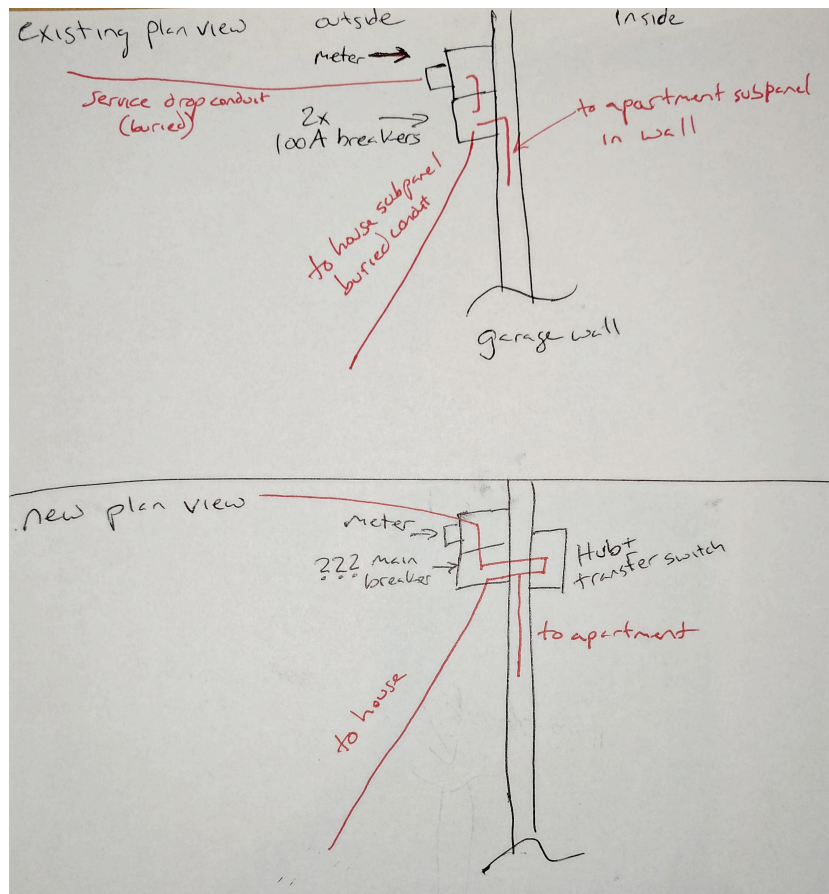 existing plan view
outside
inside
meter →
service drop conduit
(buried)
2x
100A breakers
to apartment subpanel
in wall
to house subpanel
buried conduit
garage wall
new plan view
meter →
??? main
breaker
Hub +
transfer switch
to apartment
to house